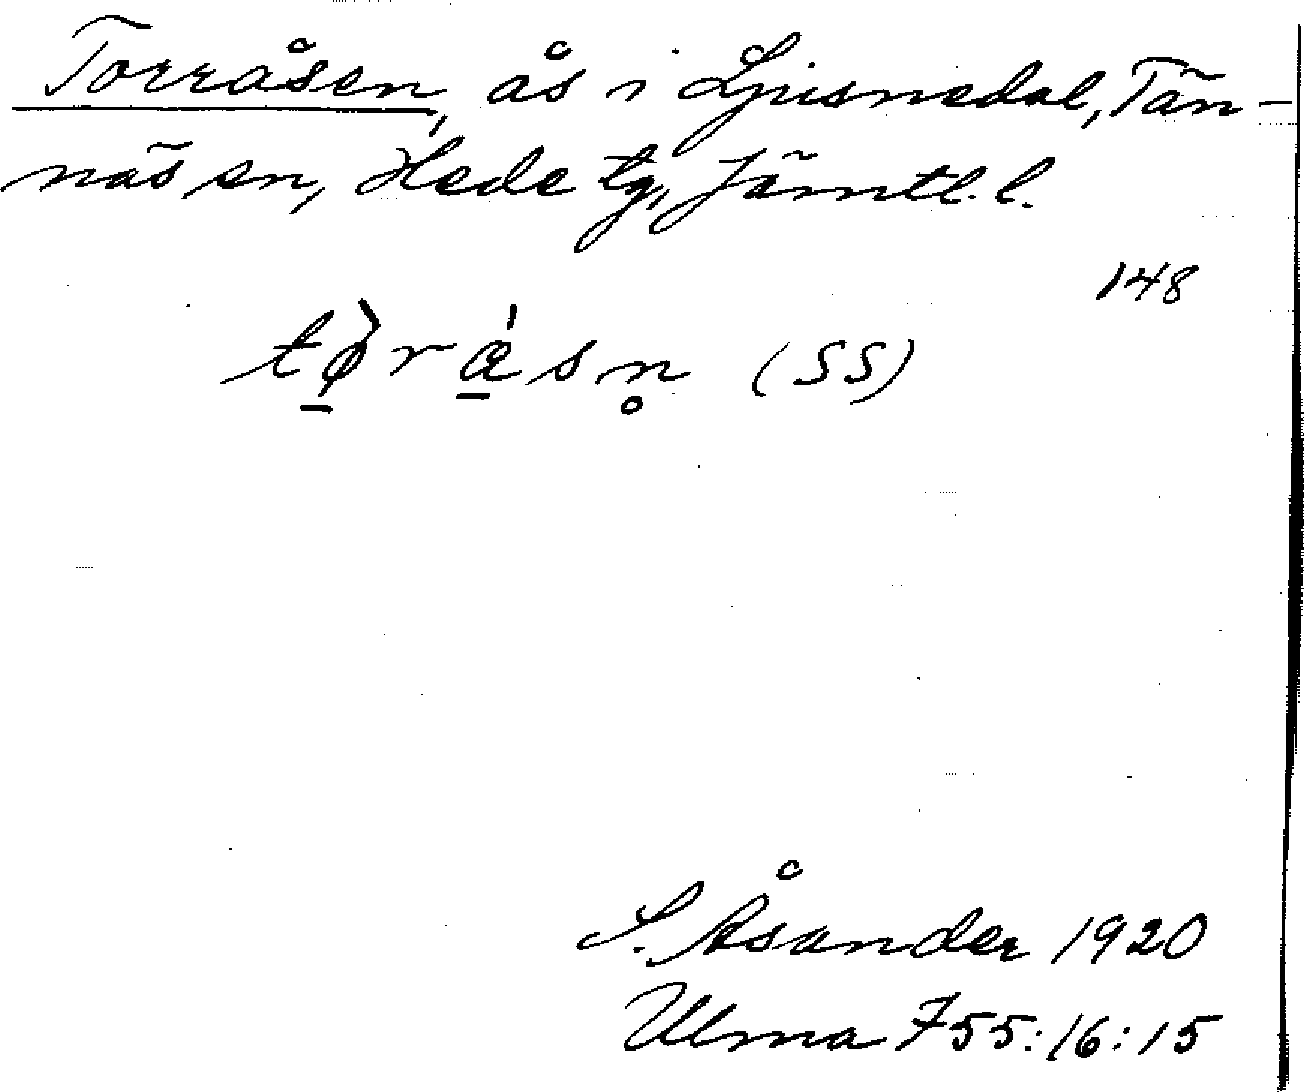 Torråsen, ås i Ljusnedal, Tän-
näs sn, Hede tg, Jämtl. l.
148
(SS)
S. Åsander 1920
Ulma 755:16:15